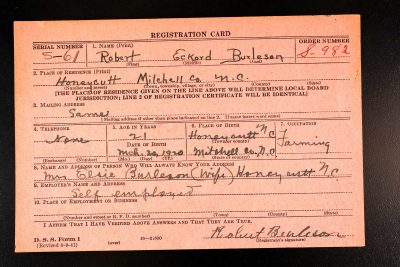 REGISTRATION CARD
SERIAL NUMBER 1. NAME (Print) ORDER NUMBER
S-61 Robert Eckord Burleson S-982
(First) (Middle) (Last)
2. PLACE OF RESIDENCE (Print)
Honeycutt Mitchell Co. N.C.
(Number and street) (Town, township, village, or city) (County) (State)
[THE PLACE OF RESIDENCE GIVEN ON THE LINE ABOVE WILL DETERMINE LOCAL BOARD
JURISDICTION; LINE 2 OF REGISTRATION CERTIFICATE WILL BE IDENTICAL]
3. MAILING ADDRESS
Same
[Mailing address if other than place indicated on line 2. If same insert word same]
4. TELEPHONE 5. AGE IN YEARS 6. PLACE OF BIRTH 7. OCCUPATION
None 21 Honeycutt N.C. Farming
DATE OF BIRTH (Town or county)
Mch. 20, 1920 Mitchell Co., N.C.
(Exchange) (Number) (Mo.) (Day) (Yr.) (State or country)
8. NAME AND ADDRESS OF PERSON WHO WILL ALWAYS KNOW YOUR ADDRESS
Mrs Elsie Burleson (Wife) Honeycutt N.C.
9. EMPLOYER'S NAME AND ADDRESS
Self employed
10. PLACE OF EMPLOYMENT OR BUSINESS
(Number and street or R. F. D. number) (Town) (County) (State)
I AFFIRM THAT I HAVE VERIFIED ABOVE ANSWERS AND THAT THEY ARE TRUE.
D. S. S. FORM 1 (over) Robert Burleson
(Revised 6-9-41) (Registrant's signature)